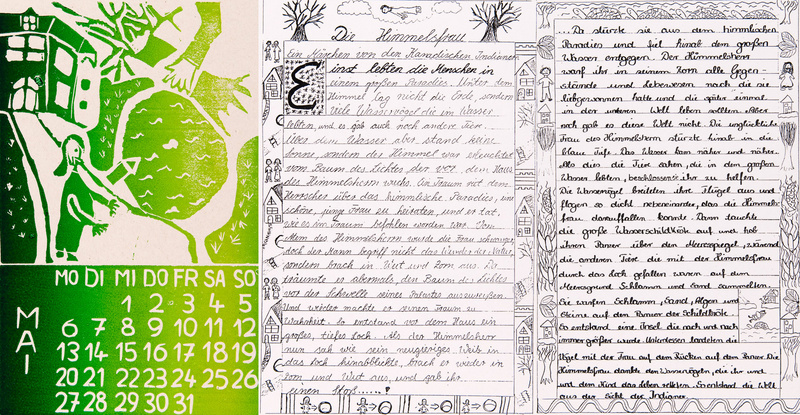 MO DI MI DO FR SA SO
1 2 3 4 5
6 7 8 9 10 11 12
13 14 15 16 17 18 19
20 21 22 23 24 25 26
27 28 29 30 31
MAI
Die Himmelsfrau
Ein Märchen von den Kanadischen Indianern
Einst lebten die Menschen in
einem großen Paradies. Unter dem
Himmel lag nicht die Erde, sondern
viele Wasservögel die im Wasser
lebten, und es gab auch noch andere Tiere.
Über dem Wasser aber stand keine
Sonne, sondern der Himmel war erleuchtet
vom Baum des Lichtes der vor dem Haus
des Himmelsherrn wuchs. Ein Traum riet dem
Herrscher über das himmlische Paradies, eine
schöne, junge Frau zu heiraten, und er tat,
wie es im Traum befohlen worden war. Vom
Atem des Himmelsherrn wurde die Frau schwanger,
doch der Mann begriff nicht das Wunder der Natur,
sondern brach in Wut und Zorn aus. Da
träumte es abermals, den Baum des Lichtes
vor der Schwelle seines Palastes auszureißen.
Und wieder machte er seinen Traum zu
Wahrheit. So entstand vor dem Haus ein
großes, tiefes Loch. Als der Himmelsherr
nun sah wie sein neugieriges Weib in
das Loch hinabblickte, brach er wieder in
Zorn und Wut aus, und gab ihr
einen Stoß......!
...Da stürzte sie aus dem himmlischen
Paradies und fiel hinab dem großen
Wasser entgegen. Der Himmelsherr
warf ihr in seinem Zorn alle Gegen-
stände und Lebewesen nach die sie
liebgewonnen hatte und die später einmal
in der unteren Welt leben sollten. Aber
noch gab es diese Welt nicht. Die unglückliche
Frau des Himmelsherrn stürzte hinab in die
blaue Tiefe. Das Wasser kam näher und näher.
Als dies die Tiere sahen, die in dem großen
Wasser lebten, beschlossen sie ihr zu helfen.
Die Wasservögel breiteten ihre Flügel aus und
flogen so dicht nebeneinander, dass die Himmels-
frau darauffallen konnte. Dann tauchte
die große Wasserschildkröte auf und hob
ihren Panzer über den Meeresspiegel, während
die anderen Tiere die mit der Himmelsfrau
durch das Loch gefallen waren auf dem
Meeresgrund Schlamm und Sand sammelten.
Sie warfen Schlamm, Sand, Algen und
Steine auf den Panzer der Schildkröte.
So entstand eine Insel, die nach und nach
immer größer wurde. Unterdessen landeten die
Vögel mit der Frau auf dem Rücken auf dem Panzer. Die
Himmelsfrau dankte den Wasservögeln, die ihr und
und dem Kind das Leben retteten. So entstand die Welt
aus der Sicht der Indianer.